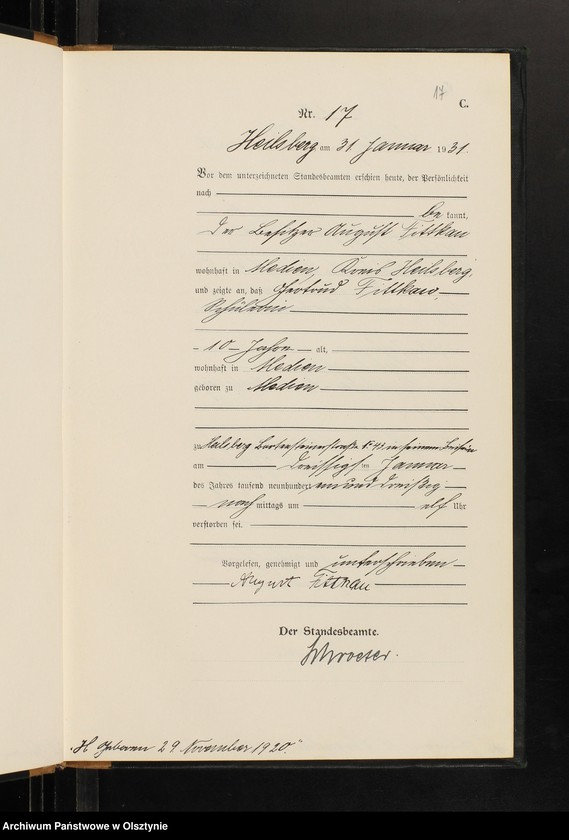 17
C.
Nr. 17
Heilsberg am 31 Januar 1931.
Vor dem unterzeichneten Standesbeamten erschien heute, der Persönlichkeit
nach
be kannt,
der Besitzer August Fittkau
wohnhaft in Medien, Kreis Heilsberg,
und zeigte an, daß Gertrud Fittkau,
Schülerin
- 10 - Jahre - alt,
wohnhaft in Medien
geboren zu Medien
zu Heilsberg Bartensteinerstraße No 43, in seinem Beisein
am dreissigsten Januar
des Jahres tausend neunhundert einunddreißig
nach mittags um elf Uhr
verstorben sei.
Vorgelesen, genehmigt und unterschrieben
August Fittkau
Der Standesbeamte.
Schroeter.
"H Geboren 29 November 1920."
Archiwum Państwowe w Olsztynie